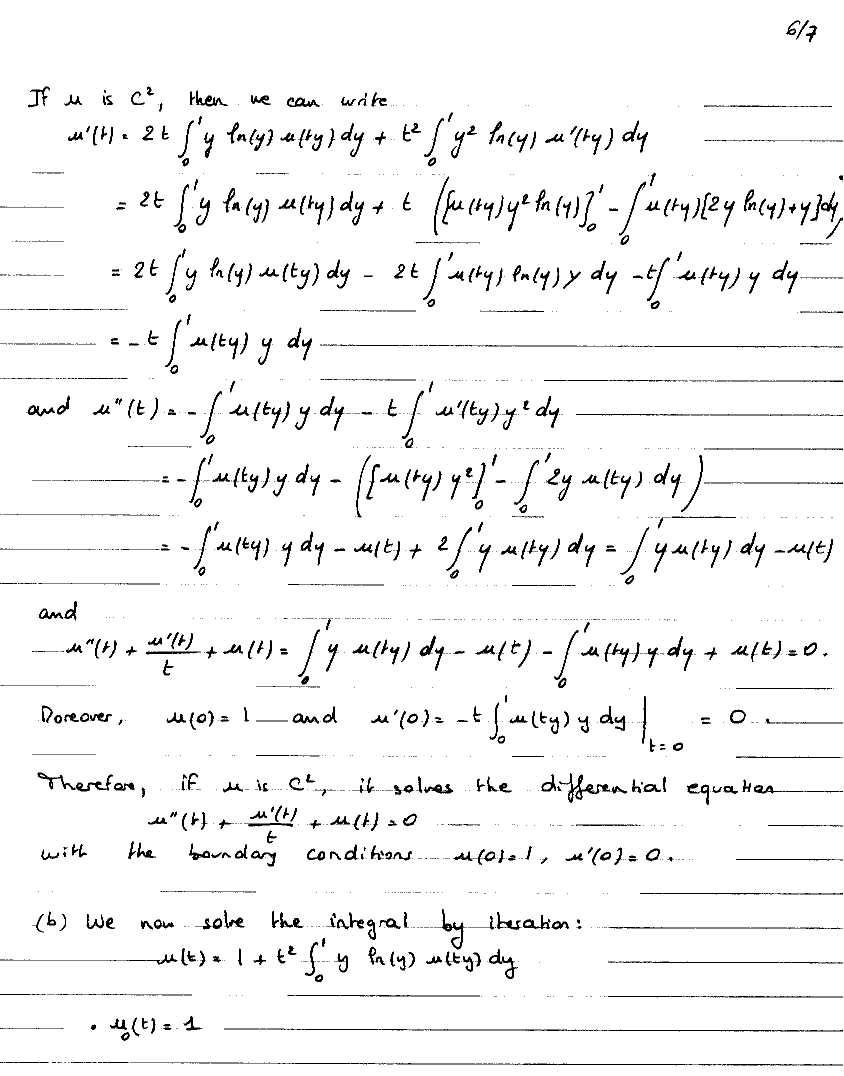 6/7
If u is C², then we can write
u'(t) = 2t ∫₀¹ y ln(y) u(ty) dy + t² ∫₀¹ y² ln(y) u'(ty) dy
= 2t ∫₀¹ y ln(y) u(ty) dy + t ([u(ty) y² ln(y)]₀¹ - ∫₀¹ u(ty) [2y ln(y) + y] dy)
= 2t ∫₀¹ y ln(y) u(ty) dy - 2t ∫₀¹ u(ty) ln(y) y dy - t ∫₀¹ u(ty) y dy
= - t ∫₀¹ u(ty) y dy
and u''(t) = - ∫₀¹ u(ty) y dy - t ∫₀¹ u'(ty) y² dy
= - ∫₀¹ u(ty) y dy - ([u(ty) y²]₀¹ - ∫₀¹ 2y u(ty) dy)
= - ∫₀¹ u(ty) y dy - u(t) + 2 ∫₀¹ y u(ty) dy = ∫₀¹ y u(ty) dy - u(t)
and
u''(t) + u'(t)/t + u(t) = ∫₀¹ y u(ty) dy - u(t) - ∫₀¹ u(ty) y dy + u(t) = 0.
Moreover, u(0) = 1 and u'(0) = -t ∫₀¹ u(ty) y dy |t=0 = 0.
Therefore, if u is C², it solves the differential equation
u''(t) + u'(t)/t + u(t) = 0
with the boundary conditions u(0) = 1, u'(0) = 0.
(b) We now solve the integral by iteration:
u(t) = 1 + t² ∫₀¹ y ln(y) u(ty) dy
• u₀(t) = 1